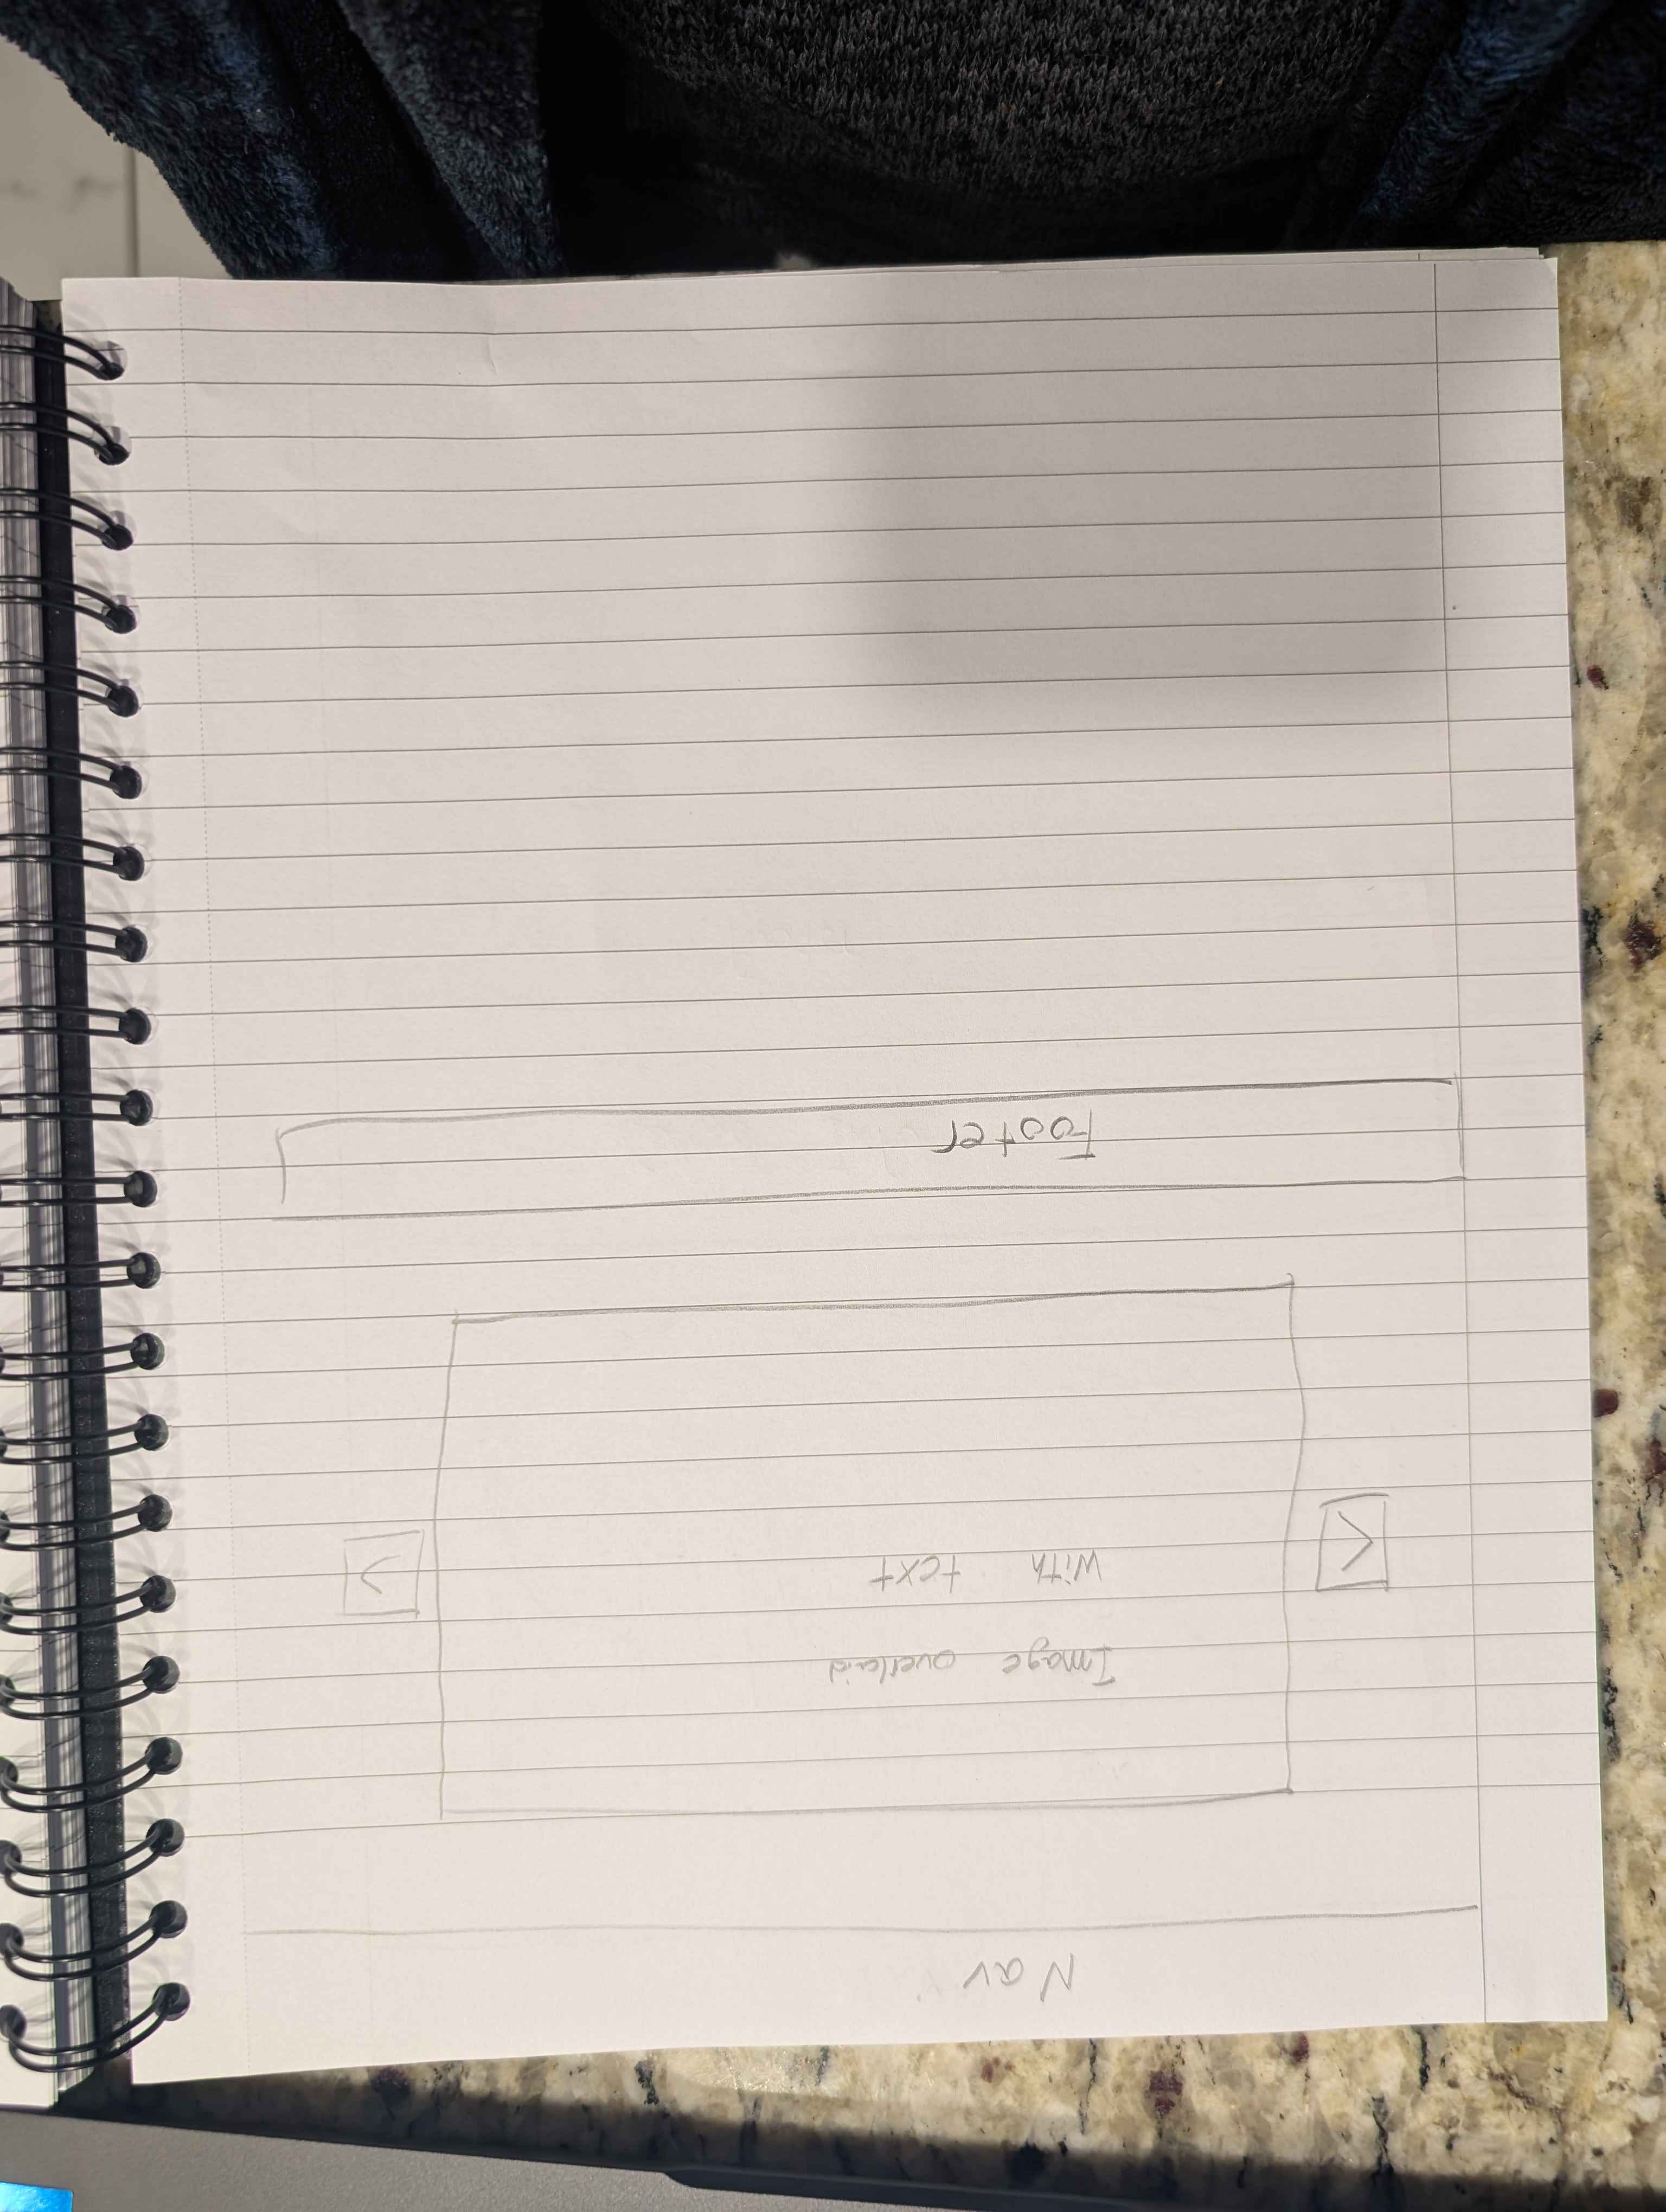 Nav
Image overlaid
with text
<
>
Footer